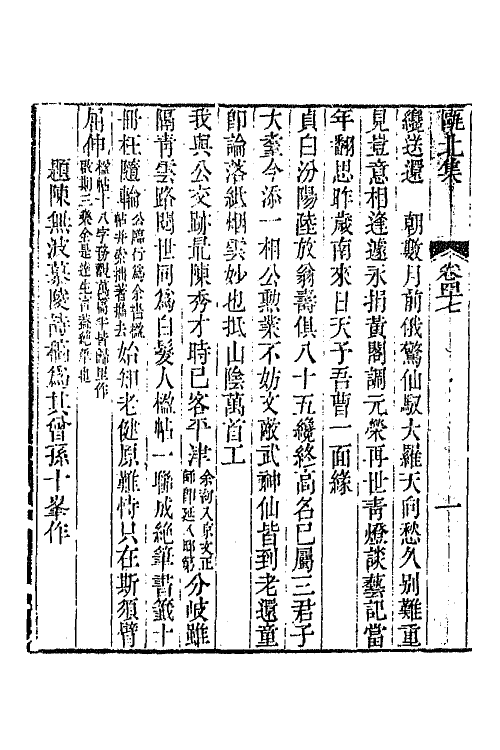 甌北集
卷四十七
一
纔送還 朝數月前俄驚仙馭大羅天向愁久別難重
見豈意相逢遽永捐黃閣調元榮再世靑燈談藝記當
年翻思昨歲南來日天子吾曹一面緣
貞白汾陽陸放翁壽俱八十五纔終高名已屬三君子
大耋今添一相公勳業不妨文敵武神仙皆到老還童
卽論落紙烟雲妙也抵山陰萬首工
我與公交跡最陳秀才時已客平津余初入京文正師卽延入邸第分歧雖
隔靑雲路閱世同爲白髮人楹帖一聯成絕筆書籤十
冊枉隨輪公臨行爲余書楹帖幷索拙著攜去始知老健原難恃只在斯須臂
屈伸楹帖十八字
題陳無波墓陵詩稿爲其曾孫十峯作